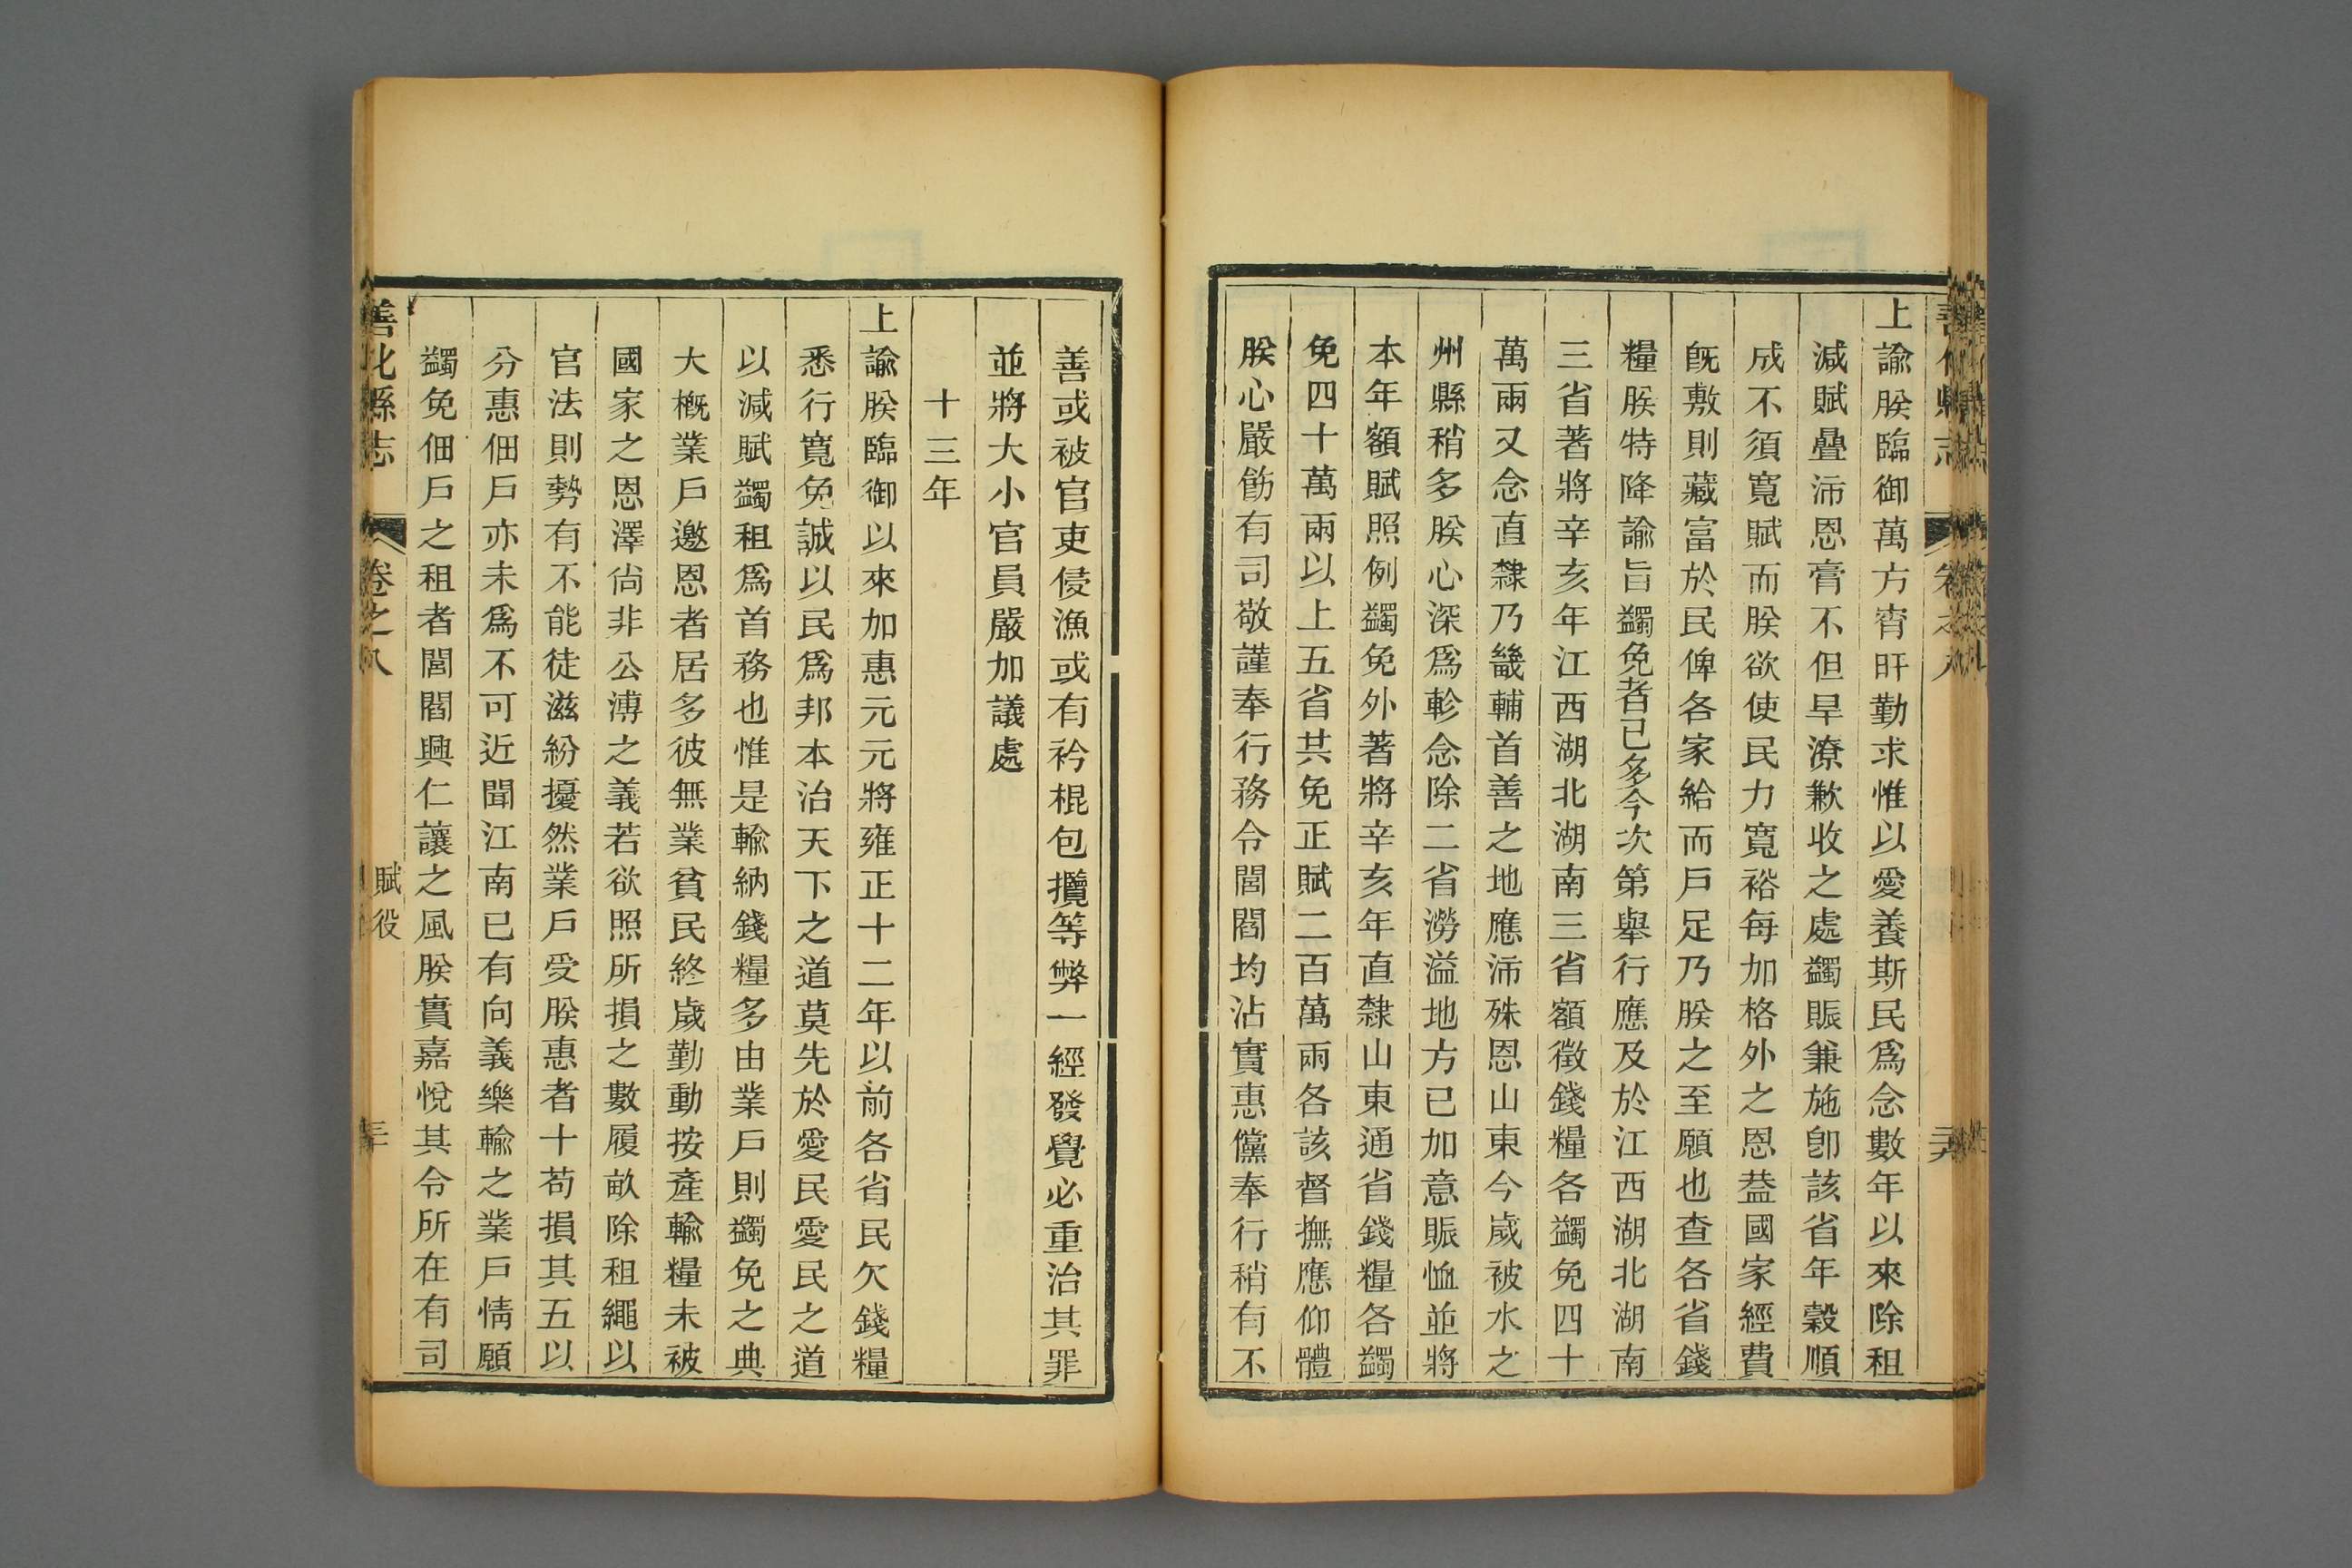 善化縣志
卷之八
上諭朕臨御萬方宵旰勤求惟以愛養斯民爲念數年以來除租
減賦疊沛恩膏不但旱潦歉收之處蠲賑兼施卽該省年穀順
成不須寬賦而朕欲使民力寬裕每加格外之恩葢國家經費
旣敷則藏富於民俾各家給而戶足乃朕之至願也查各省錢
糧朕特降諭旨蠲免者已多今次第舉行應及於江西湖北湖南
三省著將辛亥年江西湖北湖南三省額徵錢糧各蠲免四十
萬兩又念直隸乃畿輔首善之地應沛殊恩山東今歲被水之
州縣稍多朕心深爲軫念除二省澇溢地方已加意賑恤並將
本年額賦照例蠲免外著將辛亥年直隸山東通省錢糧各蠲
免四十萬兩以上五省共免正賦二百萬兩各該督撫應仰體
朕心嚴飭有司敬謹奉行務令閭閻均沾實惠儻奉行稍有不
善或被官吏侵漁或有衿棍包攬等弊一經發覺必重治其罪
並將大小官員嚴加議處
十三年
上諭朕臨御以來加惠元元將雍正十二年以前各省民欠錢糧
悉行寬免誠以民爲邦本治天下之道莫先於愛民愛民之道
以減賦蠲租爲首務也惟是輸納錢糧多由業戶則蠲免之典
大概業戶邀恩者居多彼無業貧民終歲勤動按產輸糧未被
國家之恩澤尙非公溥之義若欲照所損之數履畝除租繩以
官法則勢有不能徒滋紛擾然業戶受朕惠者十苟損其五以
分惠佃戶亦未爲不可近聞江南已有向義樂輸之業戶情願
蠲免佃戶之租者閭閻興仁讓之風朕實嘉悅其令所在有司
善化縣志
卷之八
賦役